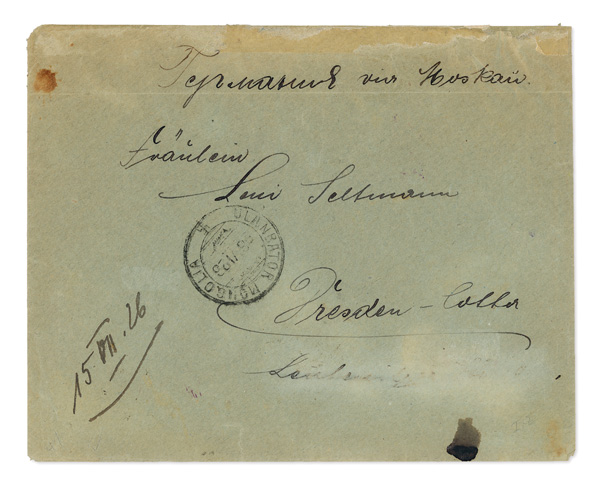 Германия via Moskau.
Fräulein
Leni Seltmann
ULANBATOR MONGOLIA
Dresden-Cotta
15 VII. 26